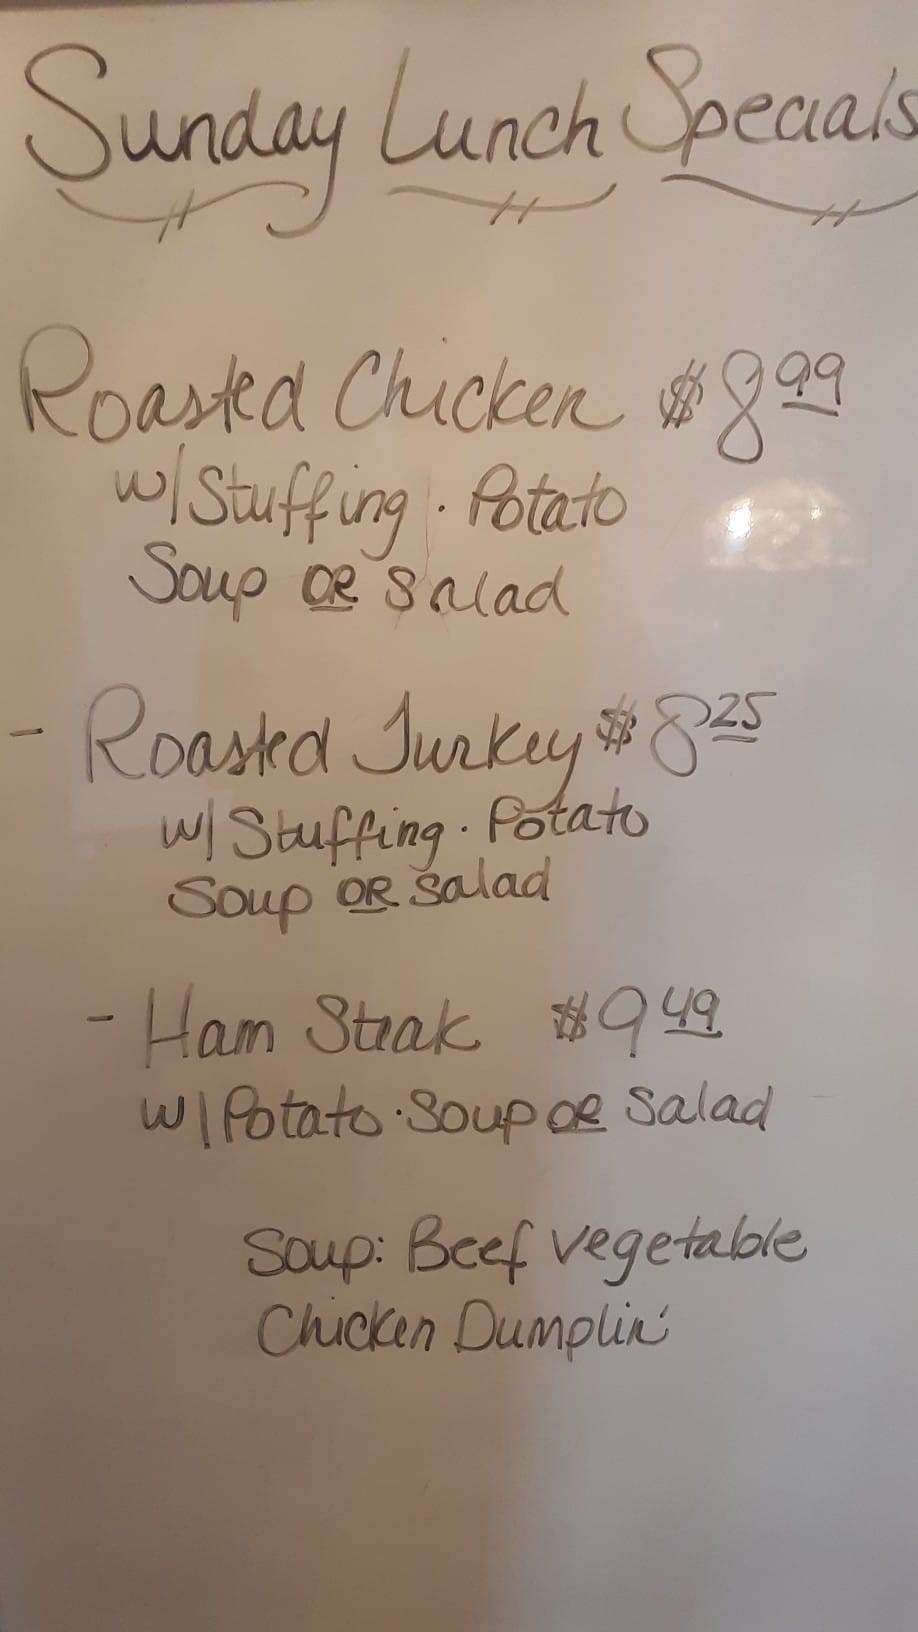 Sunday Lunch Specials
Roasted Chicken $8.99
w/Stuffing · Potato
Soup OR Salad
- Roasted Turkey $8.25
w/Stuffing · Potato
Soup OR Salad
- Ham Steak $9.49
w/Potato · Soup OR Salad
Soup: Beef Vegetable
Chicken Dumplin'